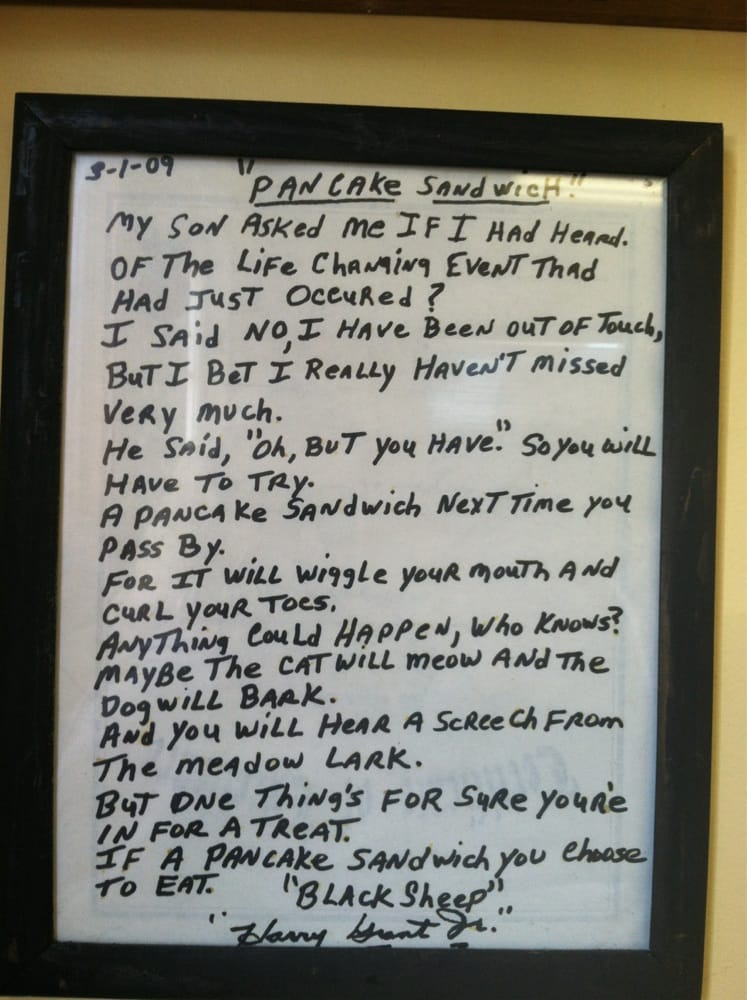 3-1-09 "PANCAKE SANDWICH."
MY SON ASKED ME IF I HAD HEARD.
OF THE LIFE CHANGING EVENT THAD
HAD JUST OCCURED?
I SAID NO, I HAVE BEEN OUT OF TOUCH,
BUT I BET I REALLY HAVEN'T MISSED
VERY MUCH.
HE SAID, "OH, BUT YOU HAVE." SO YOU WILL
HAVE TO TRY.
A PANCAKE SANDWICH NEXT TIME YOU
PASS BY.
FOR IT WILL WIGGLE YOUR MOUTH AND
CURL YOUR TOES.
ANYTHING COULD HAPPEN, WHO KNOWS?
MAYBE THE CAT WILL MEOW AND THE
DOG WILL BARK.
AND YOU WILL HEAR A SCREECH FROM
THE MEADOW LARK.
BUT ONE THING'S FOR SURE YOUR'E
IN FOR A TREAT.
IF A PANCAKE SANDWICH YOU CHOOSE
TO EAT. "BLACK SHEEP"
"Harry Grant Jr."